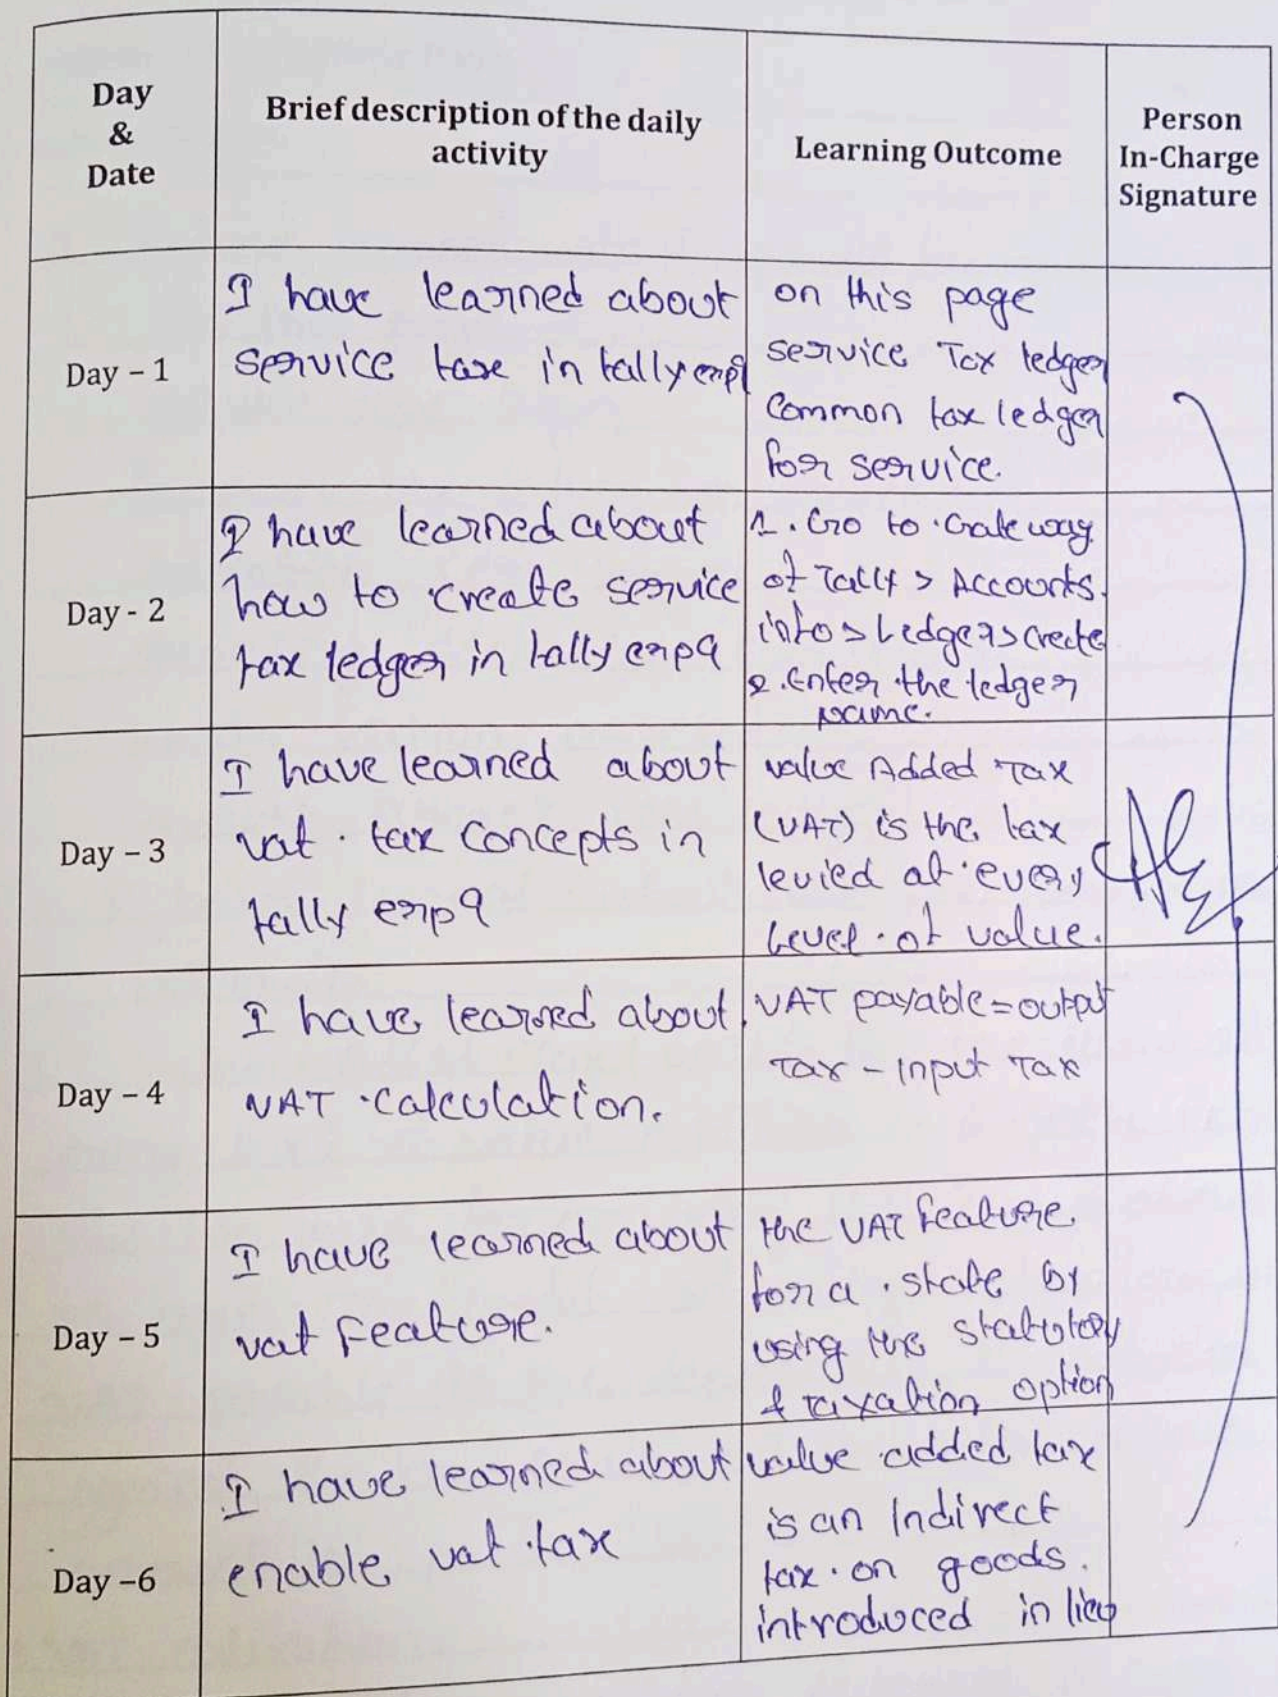 Day
&
Date
Brief description of the daily
activity
Learning Outcome
Person
In-Charge
Signature
Day – 1
I have learned about
service taxe in tally erp9
on this page
service Tax ledger
Common tax ledger
for service.
Day - 2
I have learned about
how to create service
tax ledger in tally erp9
1. Go to Gateway
of Tally > Accounts.
info > Ledgers > create
2. Enter the ledger
name.
Day – 3
I have learned about
vat . tax concepts in
tally erp9
value Added Tax
(VAT) is the tax
levied at every
level of value.
Day – 4
I have learned about
VAT calculation.
VAT payable = output
Tax – Input Tax
Day – 5
I have learned about
vat Feature.
the VAT feature
for a state by
using the statutory
& taxation option
Day –6
I have learned about
enable vat tax
value added tax
is an Indirect
tax on goods.
introduced in lieu